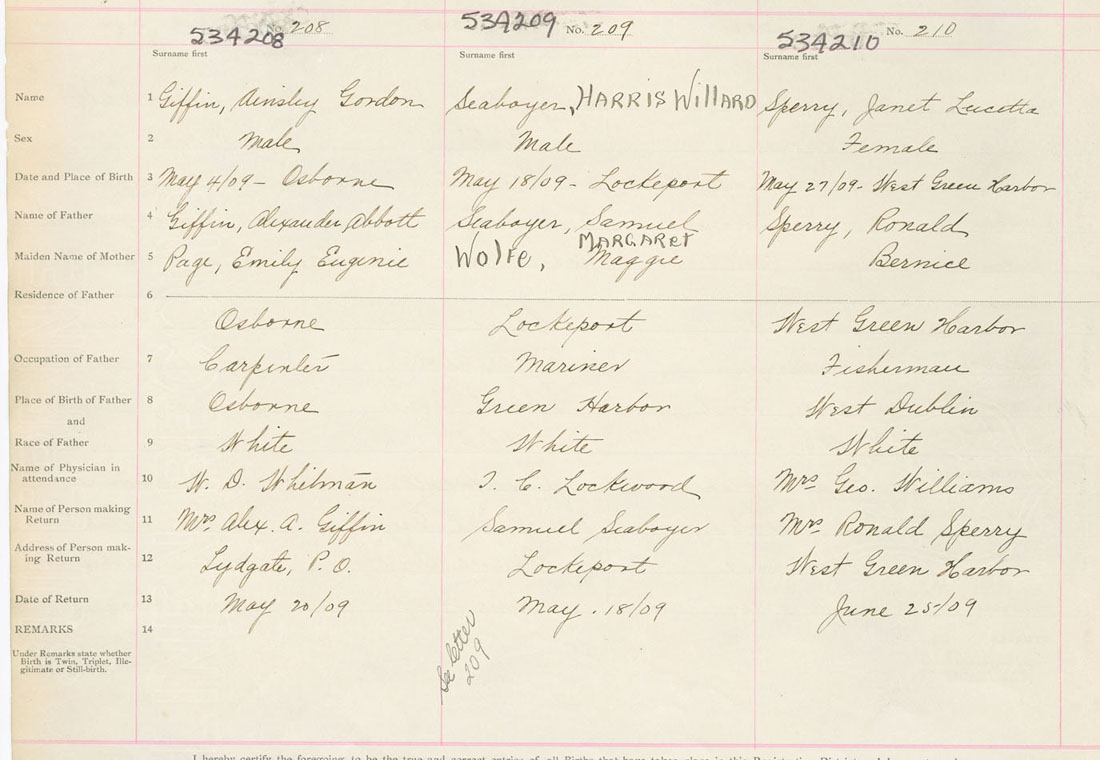 534208 No. 208 534209 No. 209 534210 No. 210
Surname first Surname first Surname first
Name 1 Giffin, Ainsley Gordon Seaboyer, HARRIS WillARD Sperry, Janet Lucetta
Sex 2 Male Male Female
Date and Place of Birth 3 May 4/09 - Osborne May 18/09 - Lockeport May 27/09 - West Green Harbor
Name of Father 4 Giffin, Alexander Abbott Seaboyer, Samuel Sperry, Ronald
MARGARET
Maiden Name of Mother 5 Page, Emily Euginie Wolfe, Maggie Bernice
Residence of Father 6
Osborne Lockeport West Green Harbor
Occupation of Father 7 Carpenter Mariner Fisherman
Place of Birth of Father 8 Osborne Green Harbor West Dublin
and
Race of Father 9 White White White
Name of Physician in
attendance 10 W. D. Whitman I. C. Lockwood Mrs Geo. Williams
Name of Person making
Return 11 Mrs Alex. A. Giffin Samuel Seaboyer Mrs Ronald Sperry
Address of Person mak-
ing Return 12 Lydgate, P. O. Lockeport West Green Harbor
Date of Return 13 May 20/09 May. 18/09 June 25/09
REMARKS 14
Under Remarks state whether
Birth is Twin, Triplet, Ille-
gitimate or Still-birth.
See letter
209
I hereby certify the foregoing to be the true and correct entries of all Births that have taken place in this Registration District